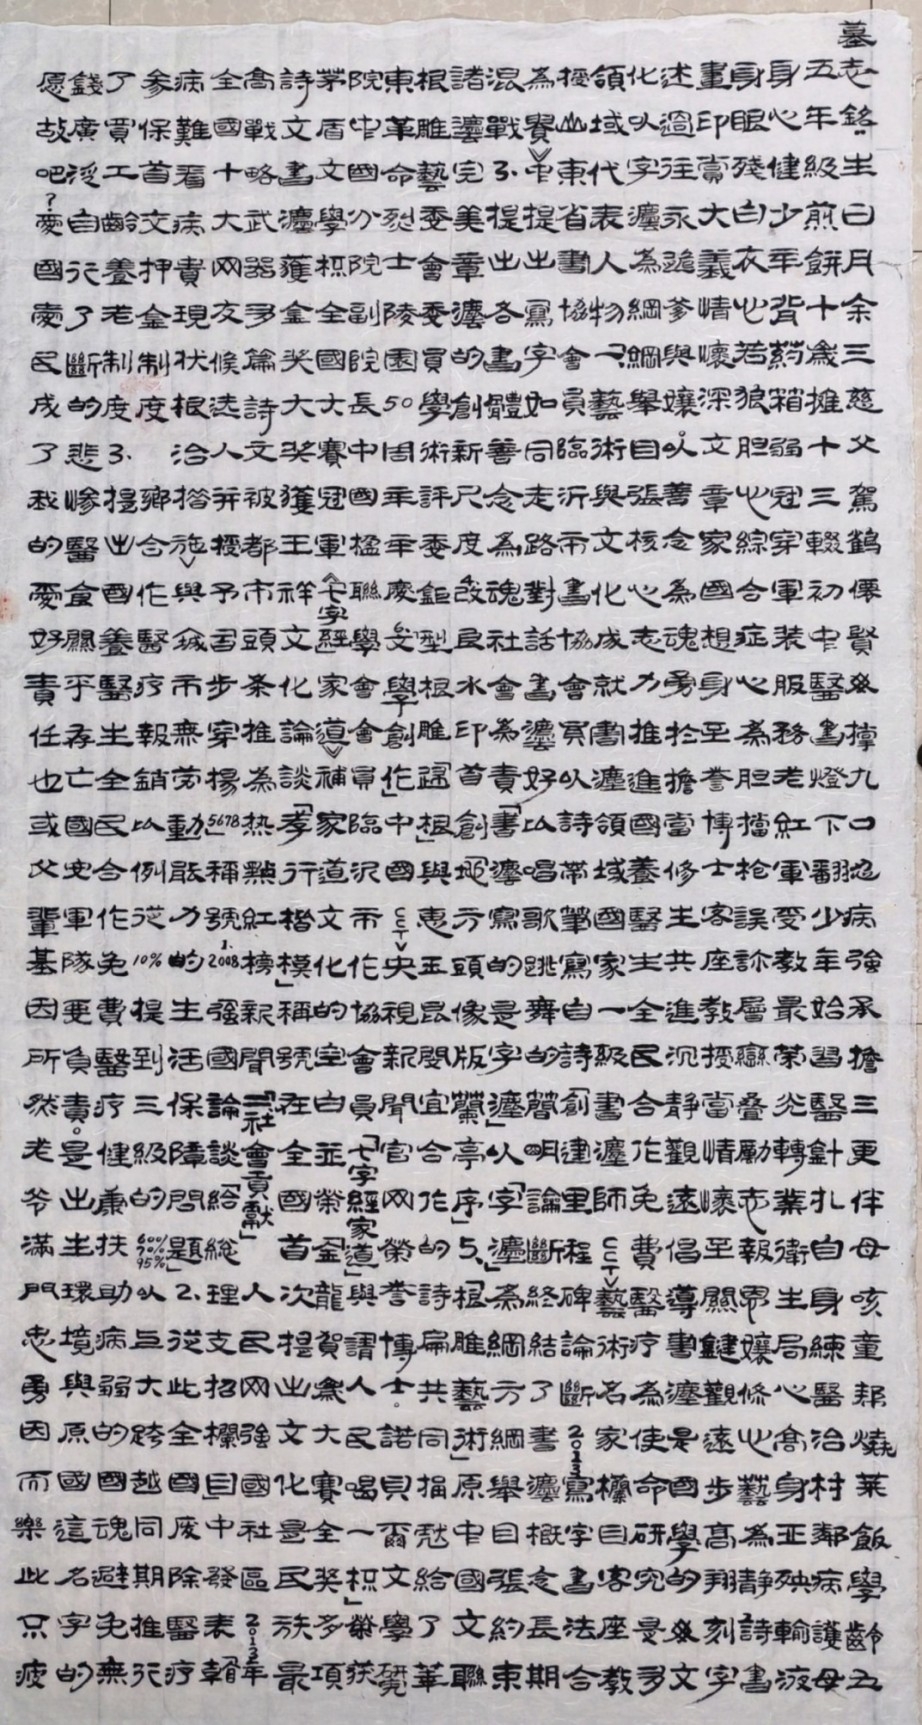 墓志銘:生日月余三慈父駕鶴僊賢癸撑九口治病強承擔三更伴母咳童邦燒菜飯學齡五
五年級煎餅十歲擁十三輟初中醫書燈下翻少年始習醫針扎自身練醫治村鄰病護母
身心健少年背葯箱弱冠穿軍裝服務老紅軍受教最榮光轉業衛生局心高身亞殃輪液
身眼殘白衣心若狼胆心綜合症心為胆擋枪誤診層巒叠勵志報恩孃修心藝為静詩書
畫印賞大義情懷深文章家國想身至譽博士客座教授當情懷至關鍵觀遠步高翔刻字
述過往永追爹與孃以善念為魂勇於擔當修生共進沉静觀遠倡導書瀍是國學的癸文
化以字瀍為綱綱舉目張核心志力推進國養醫生全民合作免費醫疗為使命研究是多
領域代表人物「藝術與文化成就書瀍領域國家一級書瀍師CCTV藝術名家欄目客座教
極山東省書協會員臨沂市書協會員以詩帶筆寫自詩「創建里程碑論斷2013寫字書法合
為賽中提出寫字如同走路對話書瀍好以唱歌跳舞的簡明論斷終結了書瀍概念長期
混戰3.提出各書體善念為魂社會為責「書瀍寫的是字瀍」以「字瀍為綱方綱舉目張約束
諸瀍完美章瀍的創新尺度改民水印首創地方頭像版蘭亭序」5、「根雕藝術」原中國文聯
根雕藝委會委員學術評委鉅型根雕「過根」與惠玉昆閔宜合作的詩扁共同捐献給了華
東革命烈士陵園50周年年慶受學創作」中國CCTV央視新聞官网榮誉博士。諾貝爾文學
院中國分院副院長中國楹聯學會會員臨沂市作協會員「七字經家道」與謂人民喝一栤」榮获
茅盾文學栤全國大賽冠軍「七字經家道」補家道文化的空白並榮金龍賀為大賽全奖多項
詩文書瀍獲金奖大奖獲王祥文化論談「孝行楷模」稱號在全國首次提出文化是民族最
高戰略武器多篇詩文被都市頭条推為热點紅榜新聞「三社會貢献」人民网強國社區2013年
全國十大网友候选人并授予司步穿揚「5678」稱號1.2008強國論談「給總理支招欄目」中發表
病難看病貴現状根治搭施與缄市無劳動能力的生活保障問題」2.從此全國废除醫疗
參保首交押金制度鄉合作醫疗報銷以例從10%提到三級的60%70%95%以巨大跨越同期推行
了買工齡養老制度3.提出國養醫生全民合作免費醫疗健康扶助病弱的國魂避免無
錢廣泛自行了斷的悲慘醫食關乎存亡國史軍隊要負責。是出生環境與原國這名字的
愿故吧？愛國處民成了我的愛好責任也或父輩基因所然老爷滿門忠勇因而樂此只疲